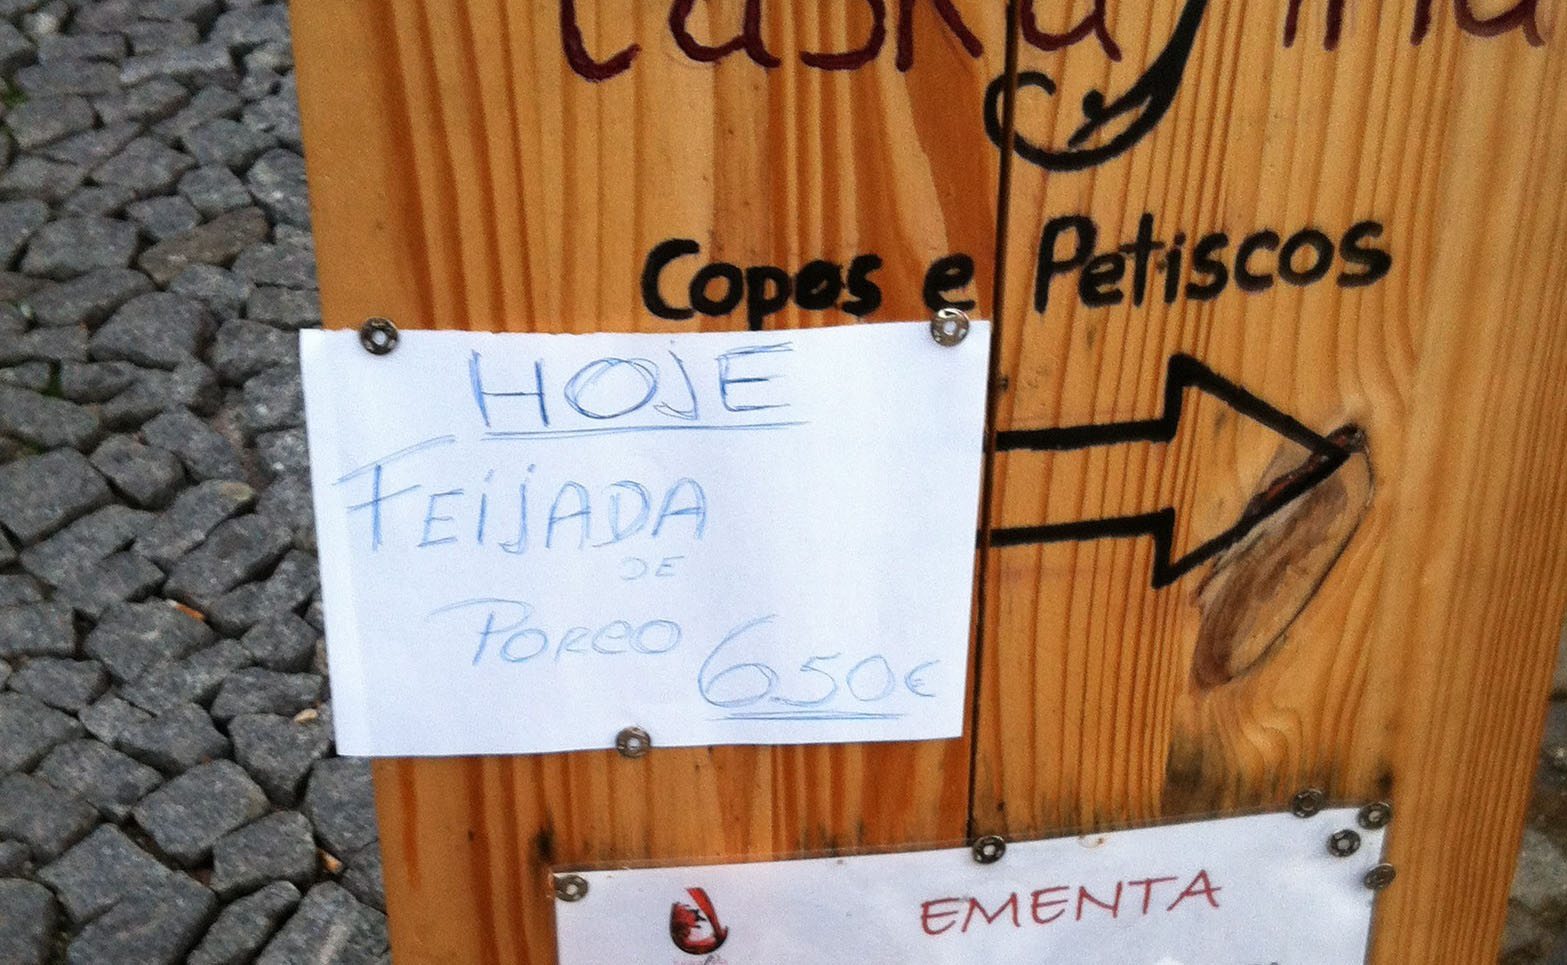 Copos e Petiscos
HOJE
FEijADA
DE
PORCO 6.50€
EMENTA